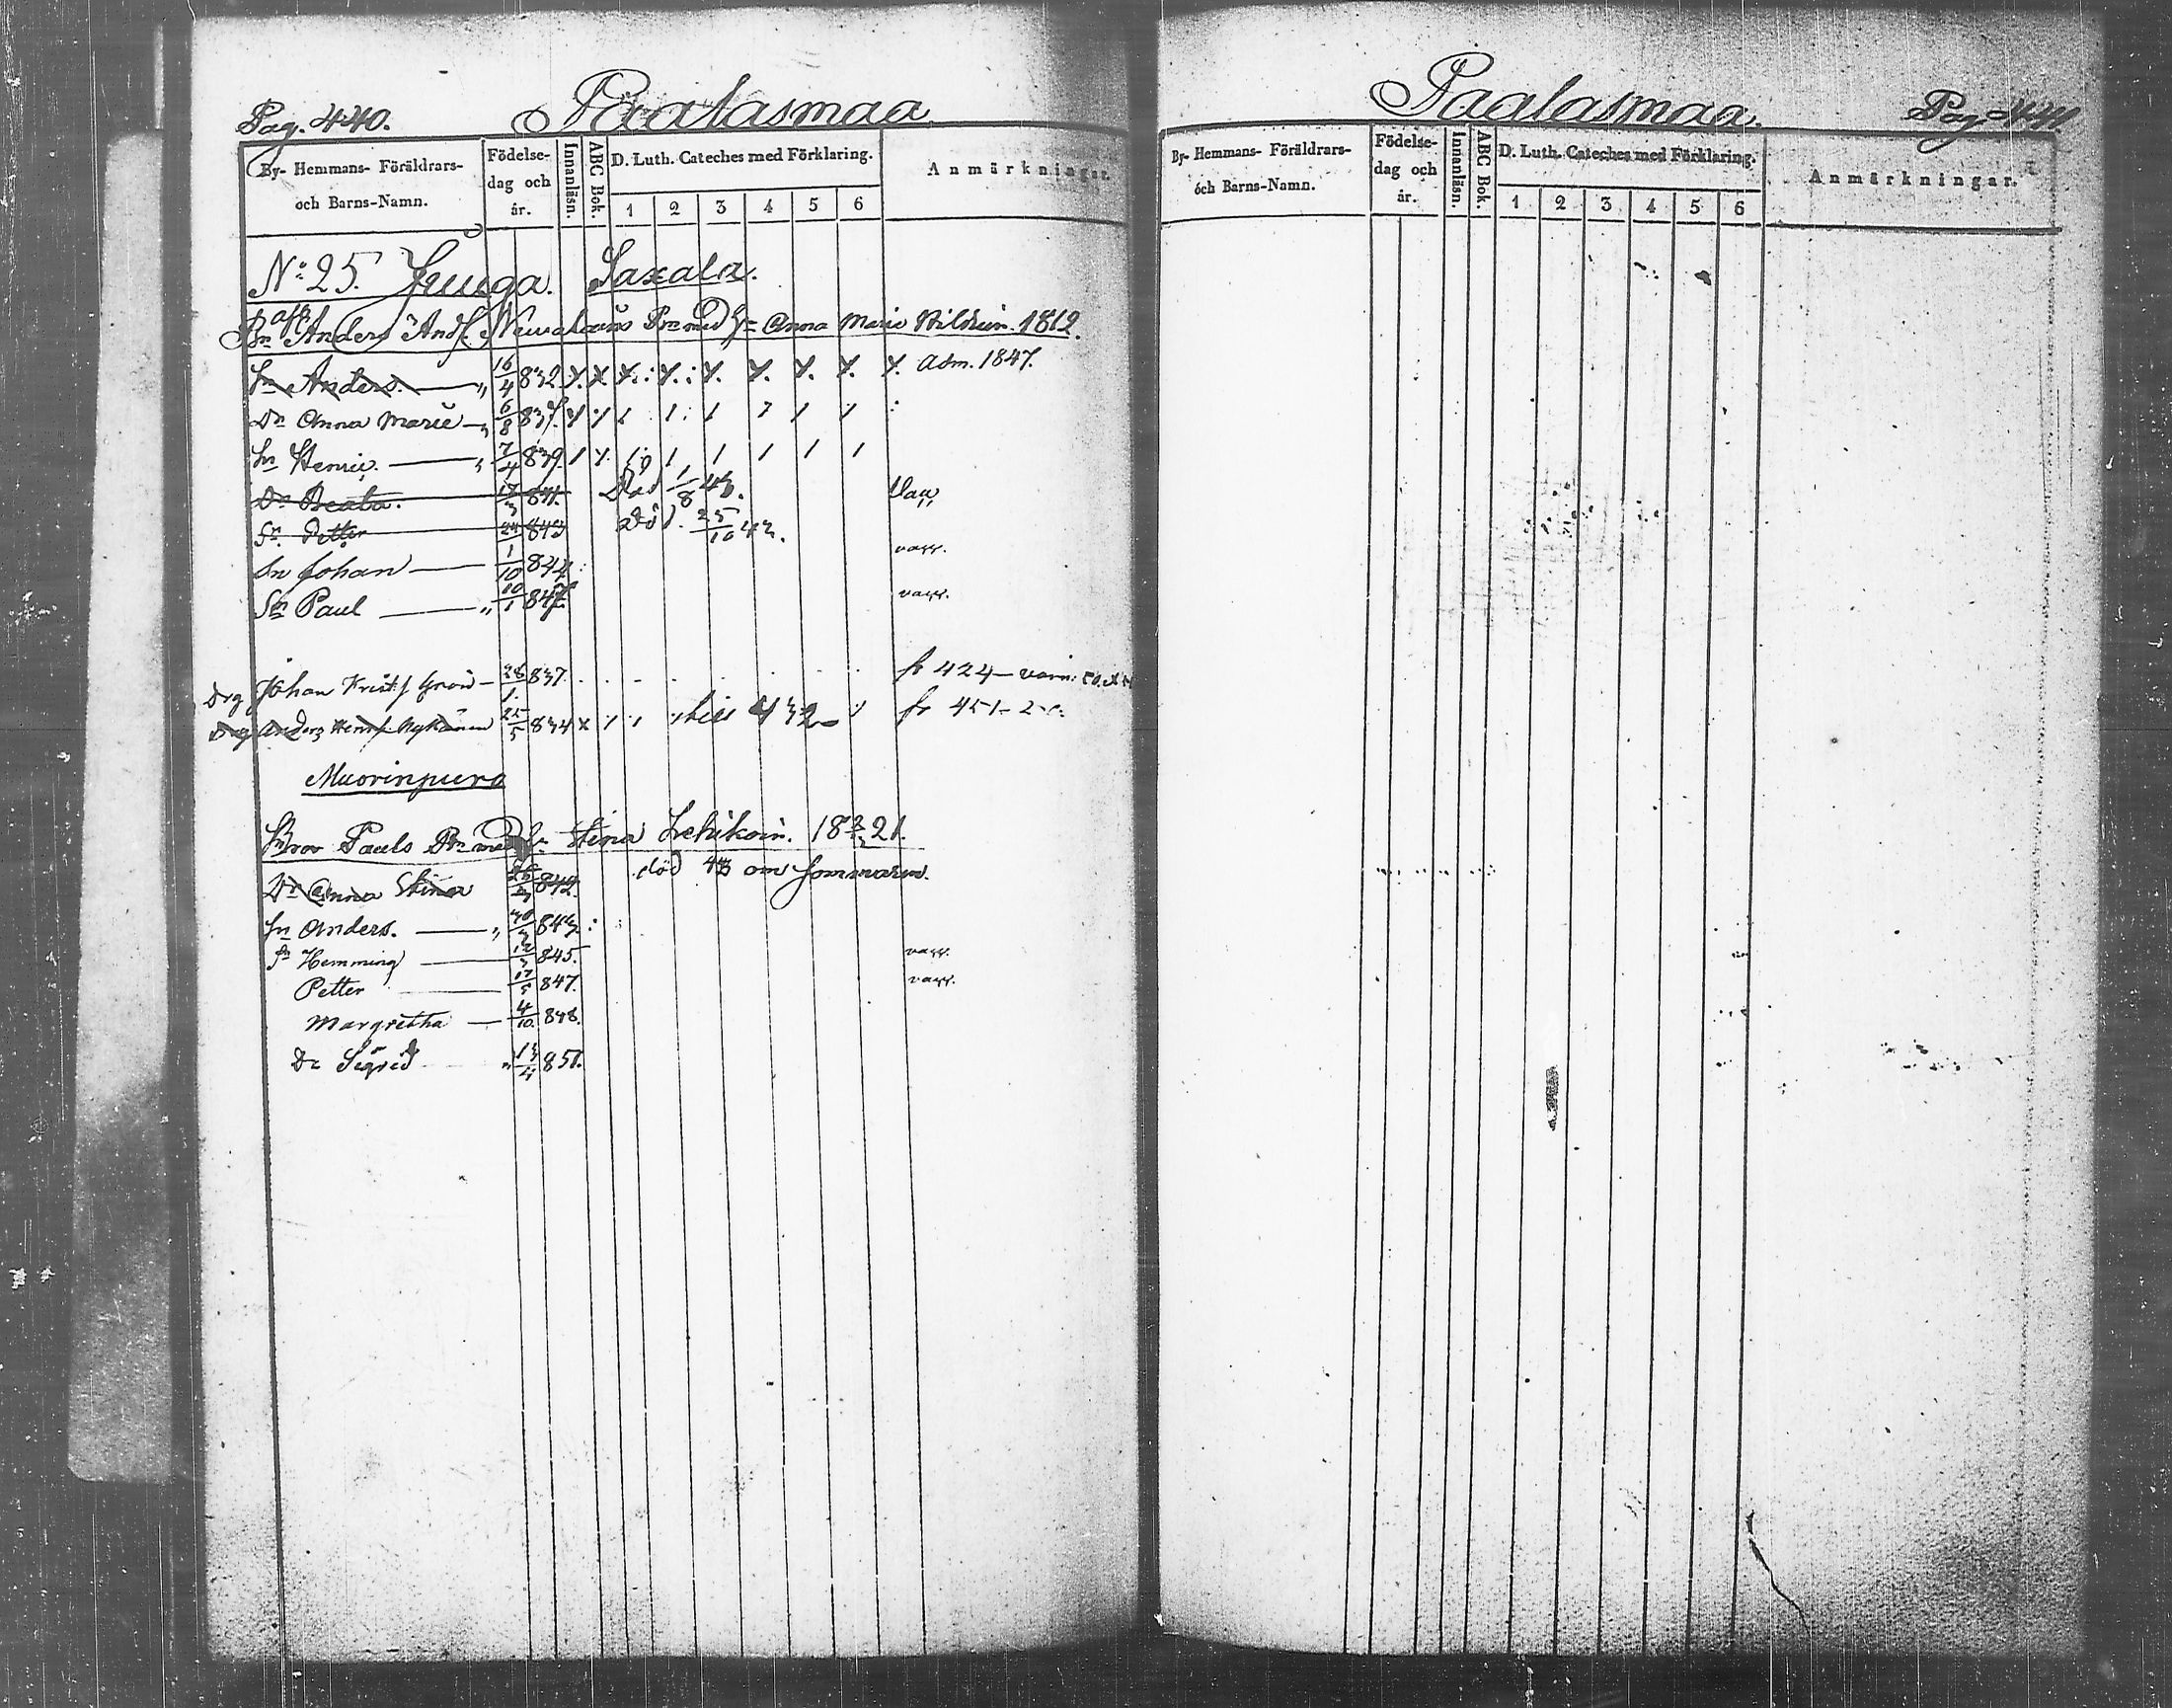 Pag. 440. Paalasmaa
By- Hemmans- Föräldrars-
och Barns-Namn.
Födelse-
dag och
år.
Innanläsn.
ABC Bok.
D. Luth. Cateches med Förklaring.
1 2 3 4 5 6
Anmärkningar.
No 25. Juuga. Saxala.
Anders Anna Maria 1812
Sn Anders. 16/4 832 Adm. 1847.
Dr Anna Maria 6/8 837.
Sn Henric 7/4 839.
Dr Beata. 17/3 841. Död 1/8 43.
Sn Petter 843 död. 25/10 43.
Sn Johan 1/10 844 vacc.
Sn Paul 10/1 847 vacc.
Drg Johan 28/1 837. fr 424
Drg Anders 25/5 834 till 432 fr 451
Muorinpuro
Bror Pauls Stina Lehikoin. 1821.
Dr Anna Stina 842. död 43 om sommaren.
Sn Anders. 843.
Sn Hemming 12/3 845. vacc.
Petter 17/5 847. vacc.
Margretha 4/10 848.
Dr Sigrid 13/4 851.
Paalasmaa. Pag. 441.
By- Hemmans- Föräldrars-
och Barns-Namn.
Födelse-
dag och
år.
Innanläsn.
ABC Bok.
D. Luth. Cateches med Förklaring.
1 2 3 4 5 6
Anmärkningar.